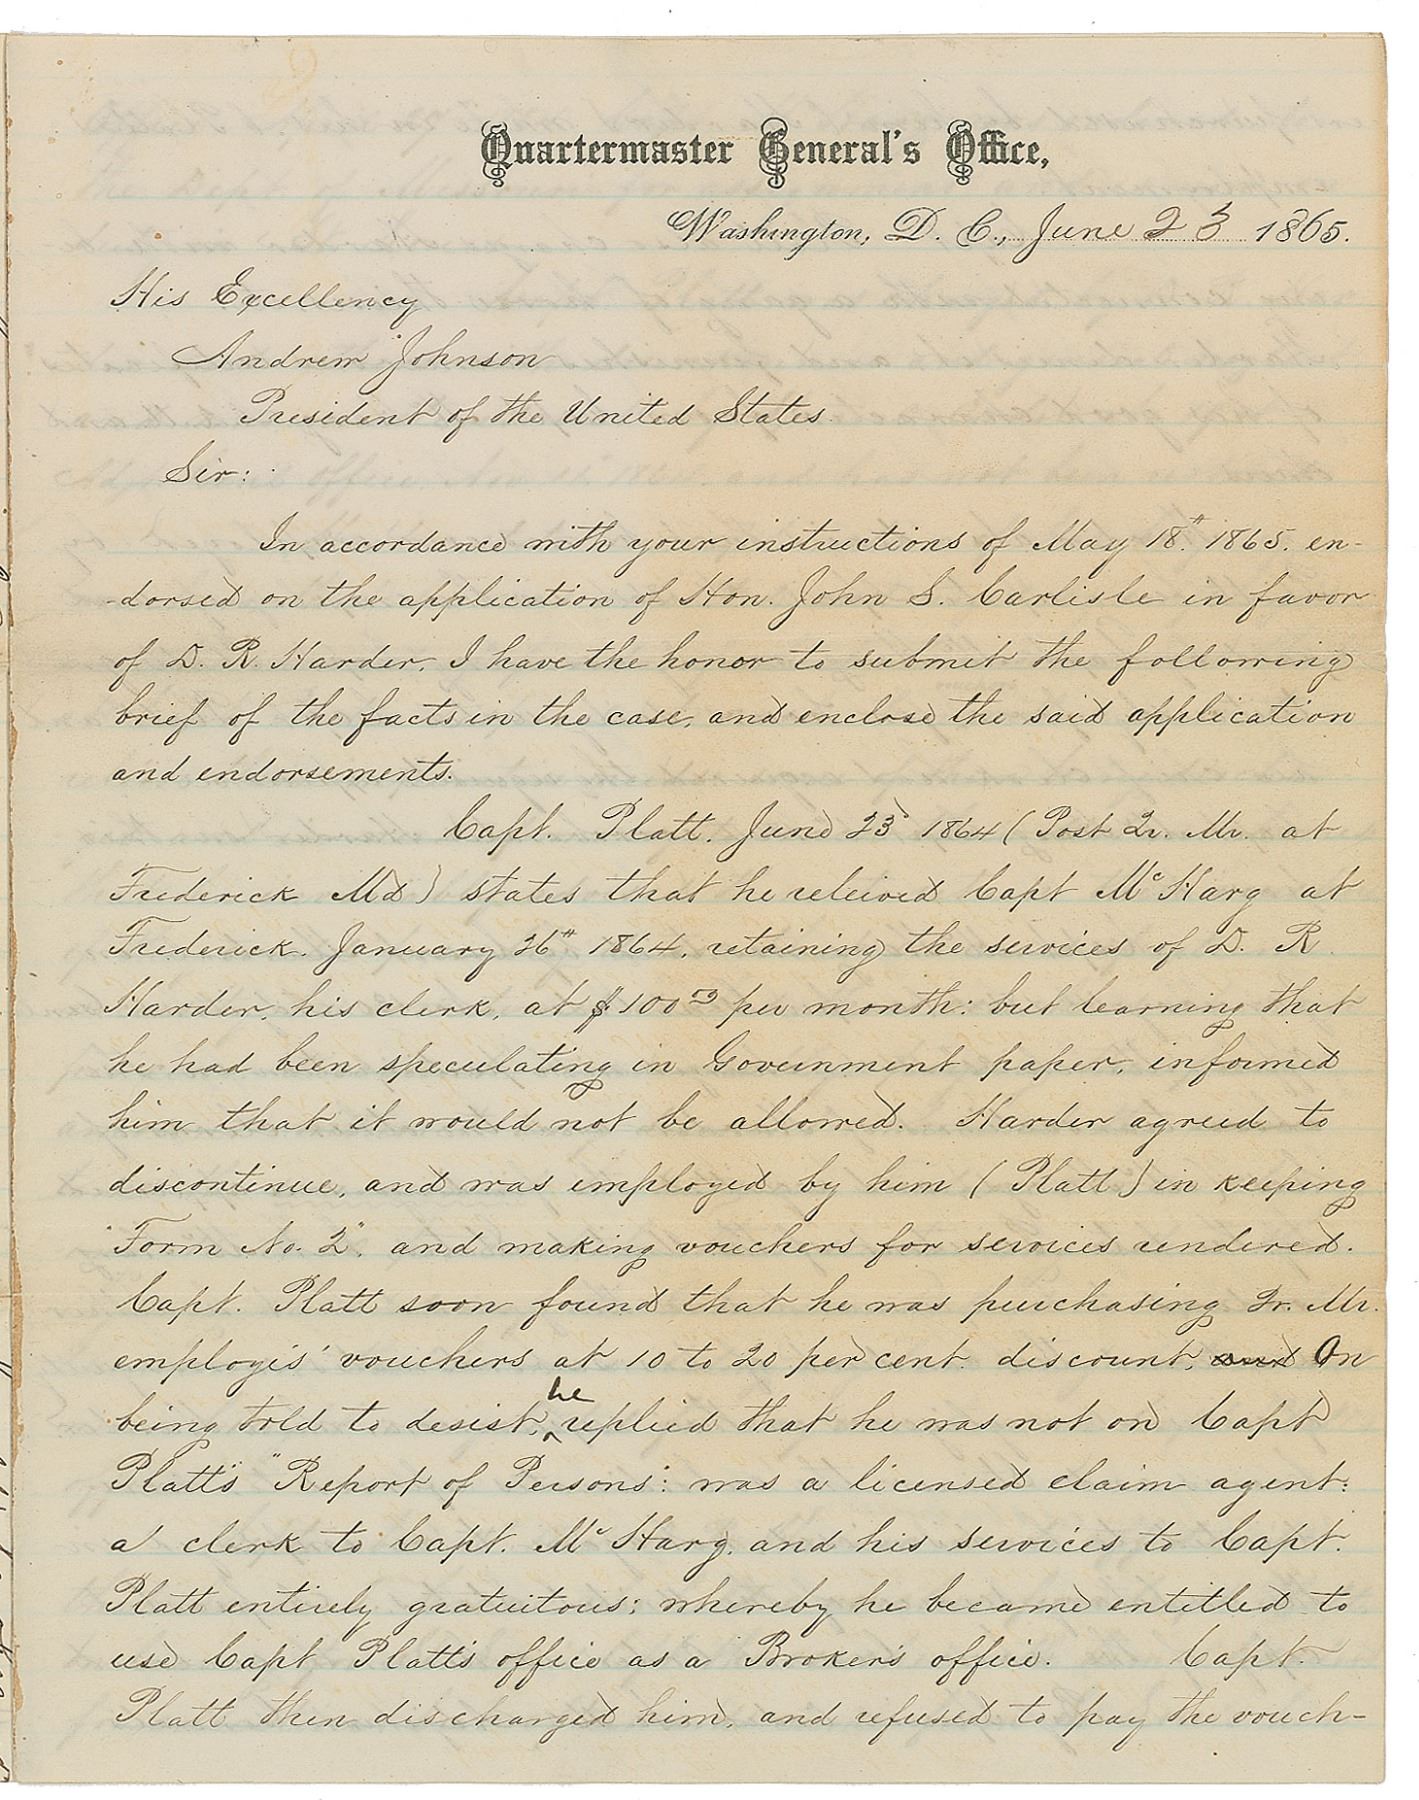 Quartermaster General's Office,
Washington, D. C., June 23 1865.
His Excellency
Andrew Johnson
President of the United States
Sir:
In accordance with your instructions of May 18th. 1865. en-
-dorsed on the application of Hon. John S. Carlisle in favor
of D. R. Harder, I have the honor to submit the following
brief of the facts in the case, and enclose the said application
and endorsements.
Capt. Platt. June 23d 1864 (Post Qr. Mr. at
Frederick Md) states that he releived Capt McHarg at
Frederick. January 26th 1864, retaining the services of D. R.
Harder, his clerk, at $100 00 per month: but learning that
he had been speculating in Government paper, informed
him that it would not be allowed. Harder agreed to
discontinue, and was employed by him (Platt) in keeping
"Form No. 2", and making vouchers for services rendered.
Capt. Platt soon found that he was purchasing Qr. Mr.
employis' vouchers at 10 to 20 per cent. discount, and On
being told to desist, he replied that he was not on Capt
Platt's "Report of Persons": was a licensed claim agent:
a clerk to Capt. McHarg, and his services to Capt.
Platt entirely gratuitous: whereby he became entitled to
use Capt Platt's office as a Broker's office. Capt.
Platt then discharged him, and refused to pay the vouch-